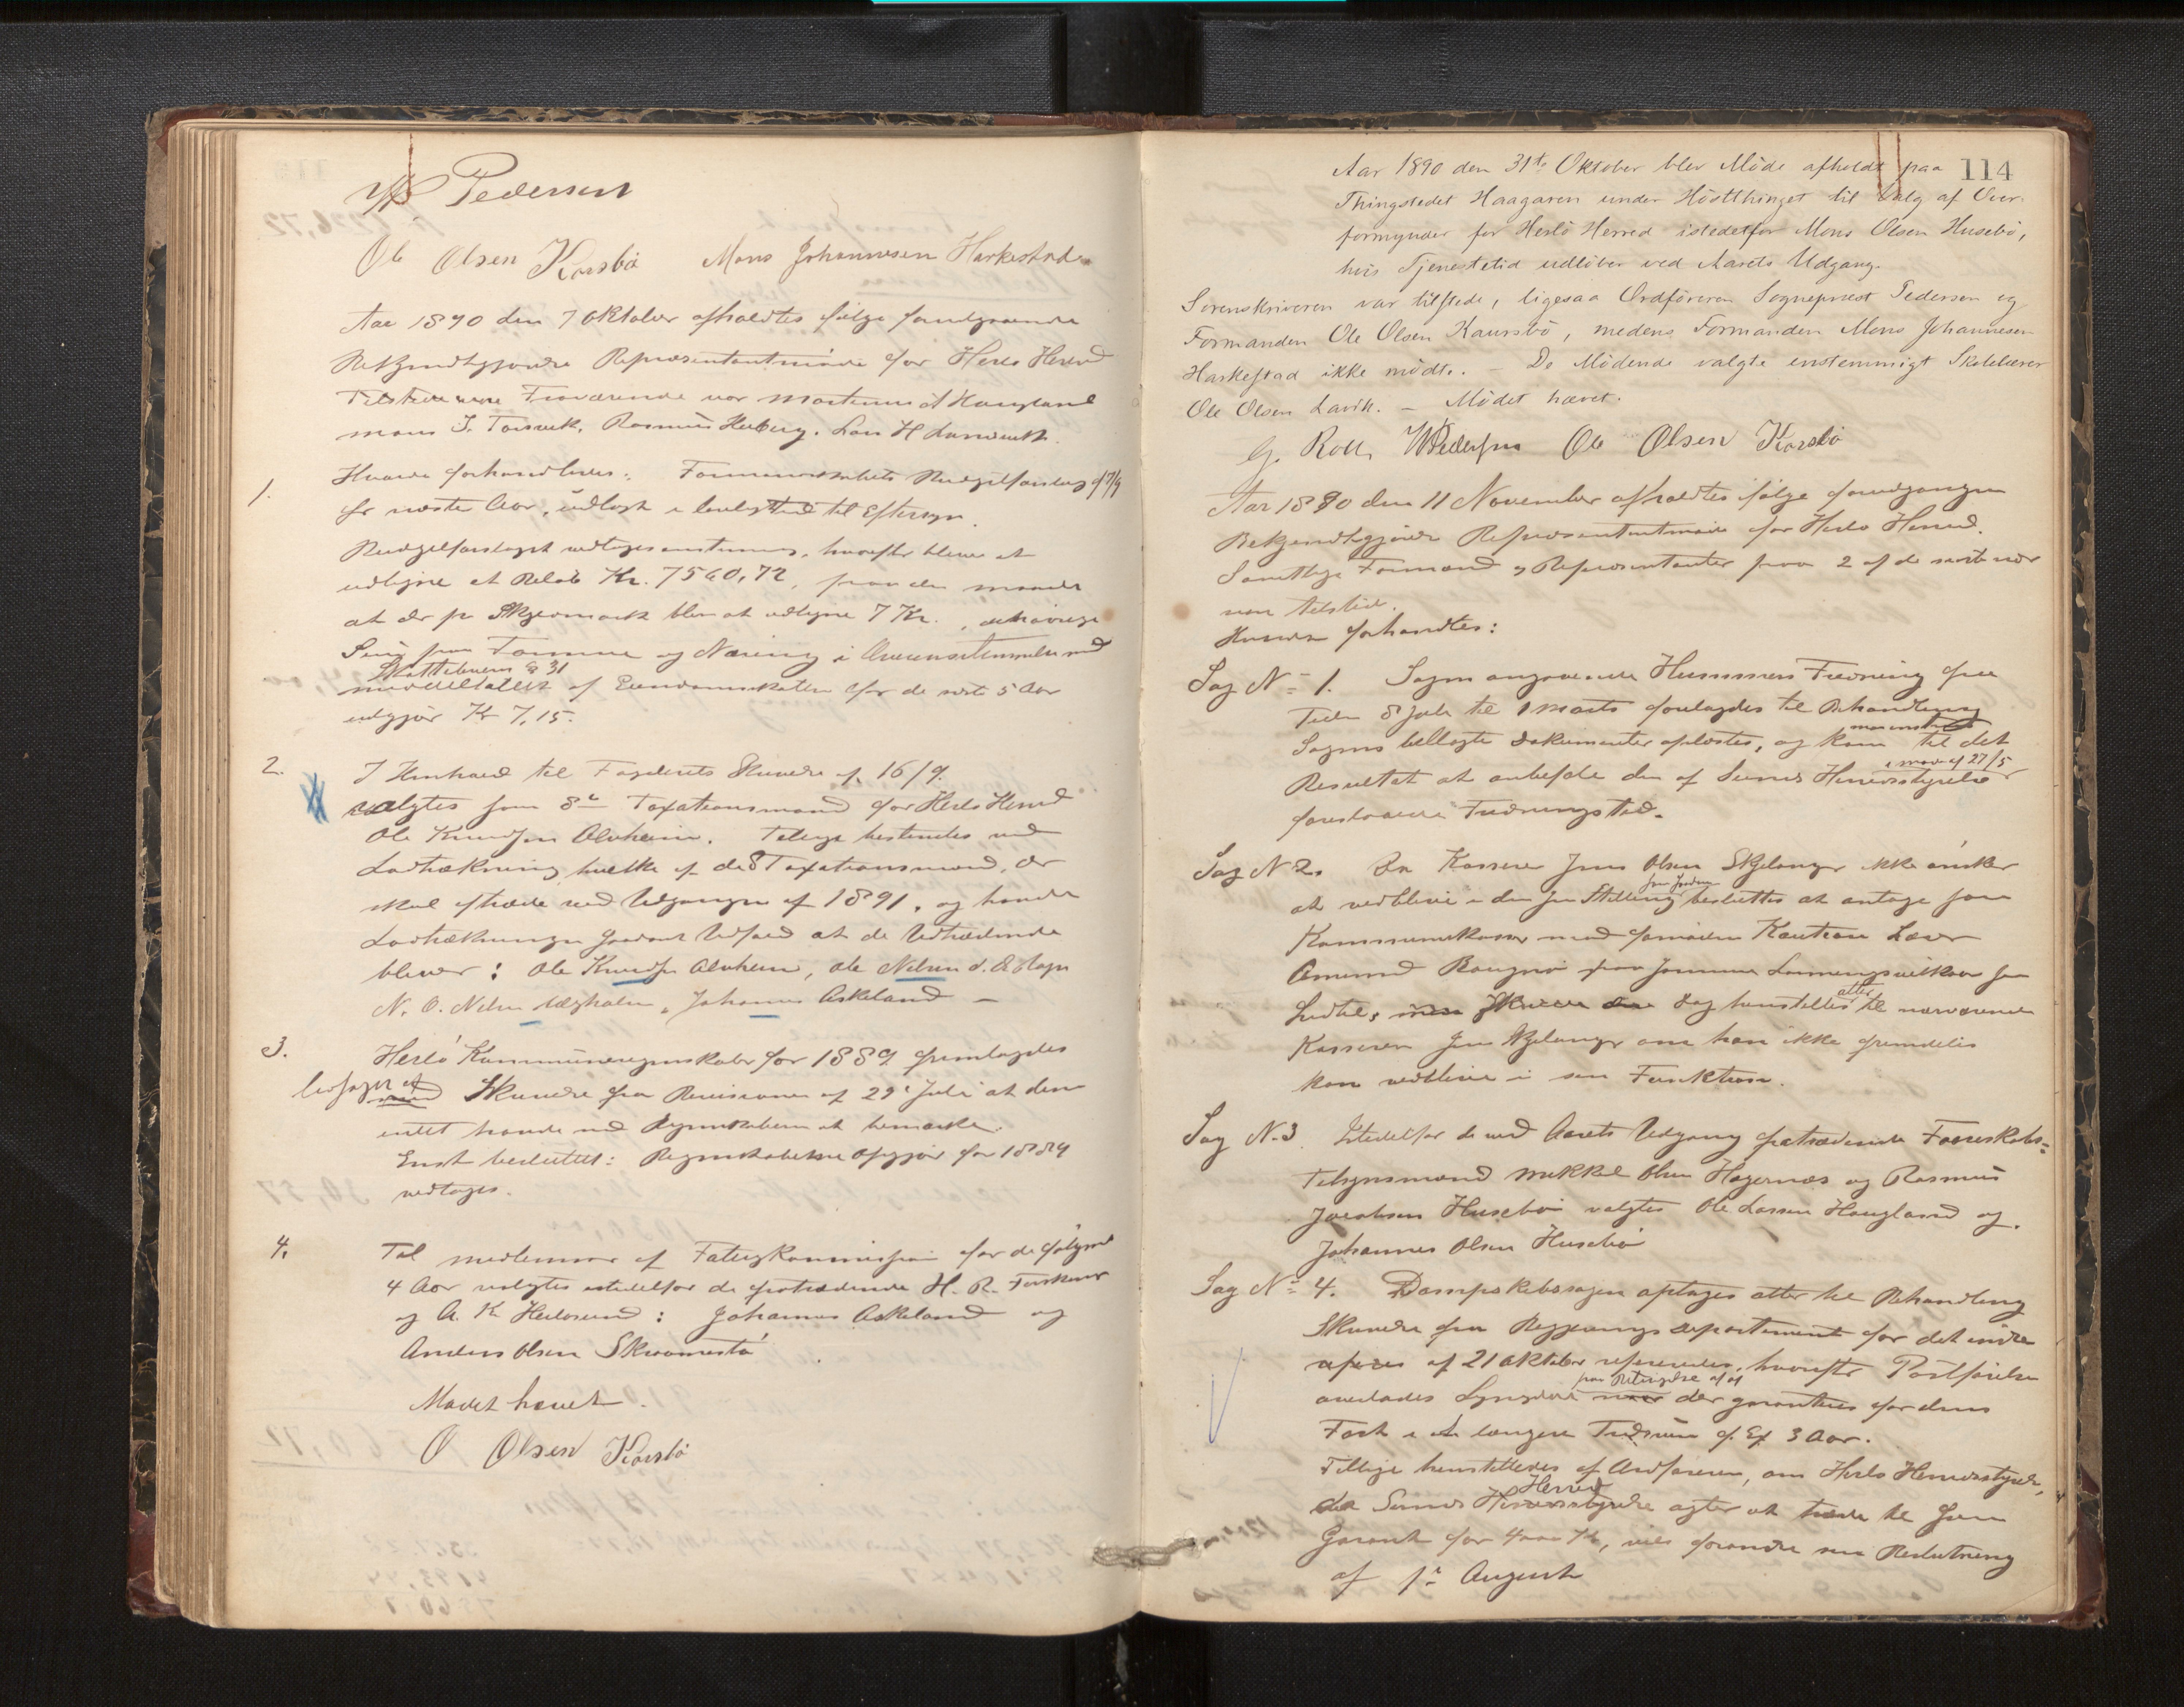 Pedersen
Ole Olsen Korsbö Mons Johannesen Harkestad
Aar 1890 den 7 Oktober afholdtes ifølge foudgaaende
Bekjendtgjørelse Repræsentantmøde for Herlø Herred
Tilstede were Fraværende var Martinus Haugland
Mons J. Torsvik, Rasmus Herberg, Lars H Landsvik.
1. Hvorda forhandledes: Formandskabets Budgetforslag af 7/9
for næste Aar, udlagt i lovlig Tid til Eftersyn.
Budgetforslaget vedtoges enstemmig, hvorefter bliver at
udligne et Beløb Kr. 7560,72, paa den Maade
at der pr Skyldmark blev at udligne 7 Kr., det øvrige
paa Formue og Næring i Overensstemmelse med
Skatteloven § 31
middeltallet af Eiendomsskatten for de sidste 5 Aar
udgjør Kr 7,15.
2. I Henhold til Fogderiets Skrivelse af 16/9.
valgtes som 8de Taxationsmand for Herlø Herred
Ole Knudsen Alvheim. Tillige bestemtes ved
Lodtrækning hvilke af de 8 Taxationsmænd, der
skal aftræde ved Udgangen af 1891, og havde
Lodtrækningen saadant Udfald at de Udtrædende
bliver: Ole Knudsen Alvheim, Ole Nilsen
N. O. Nilsen, Johannes Askeland —
3. Herlø Kommuneregnskaber for 1889 fremlagdes
ledsaget af
med Skrivelse fra Revisionen af 29de Juli at den
intet havde ved Regnskaberne at bemærke.
Enst besluttet: Regnskabernes Opgjør for 1889
vedtages.
4. Til Medlemmer af Fattigkommissionen for de følgende
4 Aar valgtes istedetfor de fratrædende H. R.
og A. K. Herlosund: Johannes Askeland og
Anders Olsen Skraamestø
Mødet hævet.
O Olsen Korsbö
114
Aar 1890 den 31te Oktober blev Möde afholdt paa
Thingstedet Haagaren under Høstthinget til Valg af Over-
formynder for Herlö Herred istedetfor Mons Olsen Husebö,
hvis Tjenestetid udlöber ved Aarets Udgang.
Sorenskriveren var tilstede, ligesaa Ordföreren Sogneprest Pedersen og
Formanden Ole Olsen Kaursbö, medens Formanden Mons Johannesen
Harkestad ikke mödte. — De Mödende valgte enstemmigt Skolelærer
Ole Olsen Lavik. — Mödet hævet.
G. Roll Pedersen Ole Olsen Korsbö
Aar 1890 den 11 November afholdtes ifølge forudgangen
Bekjendtgjørelse Repræsentantmøde for Herlø Herred.
Samtlige Formænd og Repræsentanter paa 2 af de sidste nær
var tilstede.
Hvorda forhandles:
Sag No 1. Sagen angaaende Hummers Fredning fra
Tiden 8 Juli til 1 Marts forelagdes til Behandling
Sagens bellagte Dokumenter oplæstes, og kom til det
i møde af 27/5
Resultat at anbefale den af Sunds Herredsstyrelse
foreslaaede Fredningstid.
Sag N 2. Da Kasserer Jens Olsen Skjelanger ikke ønsker
at vedblive i den Stilling besluttes at antage som
Kommunekasserer med fornøden Kaution Lærer
Amund Baugnø paa samme Lønningsvilkaar som
hidtil, Dog henstilles atter til nærværende
Kasserer Jens Skjelanger om han ikke fremdeles
kan vedblive i sin Funktion.
Sag N. 3. Istedetfor de ved Aarets Udgang fratrædende Forlikskabs-
Tilsynsmænd Mikkel Olsen Hagernæs og Rasmus
Jacobsen Husebö valgtes Ole Larsen Haugland og
Johannes Olsen Husebö
Sag No 4. Dampskibssagen optages atter til Behandling
Skrivelse fra Regjerings Departement for det indre
af 21 Oktober refereredes, hvorefter Postførelse
paa Betingelse af at
overlades Lyngdal der garanteres for dens
Fart i et længere Tidsrum f. Ex 3 Aar.
Tillige henstilledes af Ordføreren, om Herlø Herredsstyrelse,
Herred
da Sunds agter at træde til som
Garant for, vil forandre sin Beslutning
af 1ste August